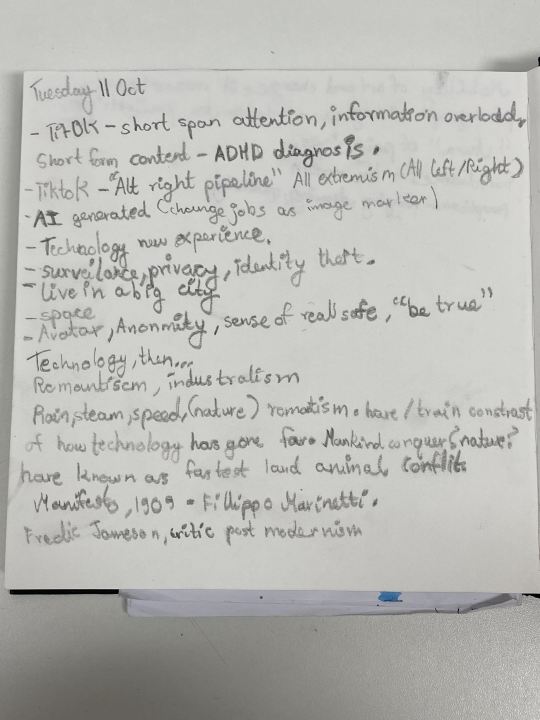 Tuesday 11 Oct
- TikTok - short span attention, information overload,
Short form content - ADHD diagnosis.
- Tiktok - "Alt right pipeline" All extremism (All left/Right)
- AI generated (change jobs as image marker)
- Technology new experience.
- surveilance, privacy, identity theft.
- live in a big city
- space
- Avatar, Anonmity, sense of real safe, "be true"
Technology, then...
Romantisem, industralism
Rain, steam, speed, (nature) romatism. hare / train constrast
of how technology has gone far. Mankind conquer? nature?
hare known as fastest land animal, Conflit
Manifesto, 1909 - Fillippo Marinetti.
Fredic Jameson, critic post modernism